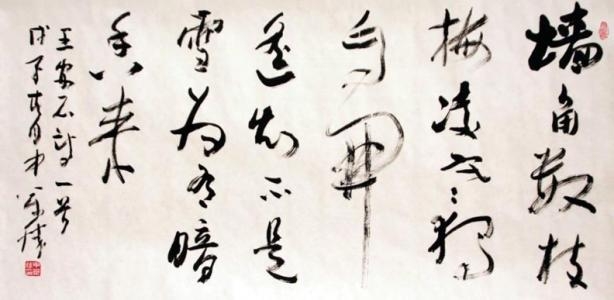 墙角数枝
梅凌寒独
自开
遥知不是
雪为有暗
香来
王安石诗一首
戊子春月